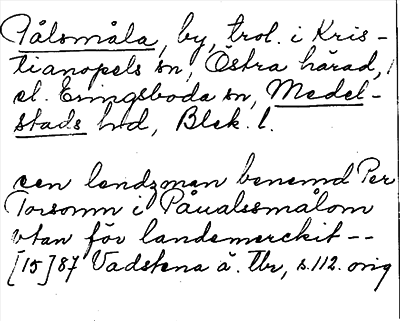 Pålsmåla, by, trol. i Kris-
tianopels sn, Östra härad,
el. Eringsboda sn, Medel-
stads hd, Blek. l.
een lendzman benemd Per
Torsonn i Påualssmålom
vtan för landemerckit--
[15]87 Vadstena ä. Tbr, s.112. orig